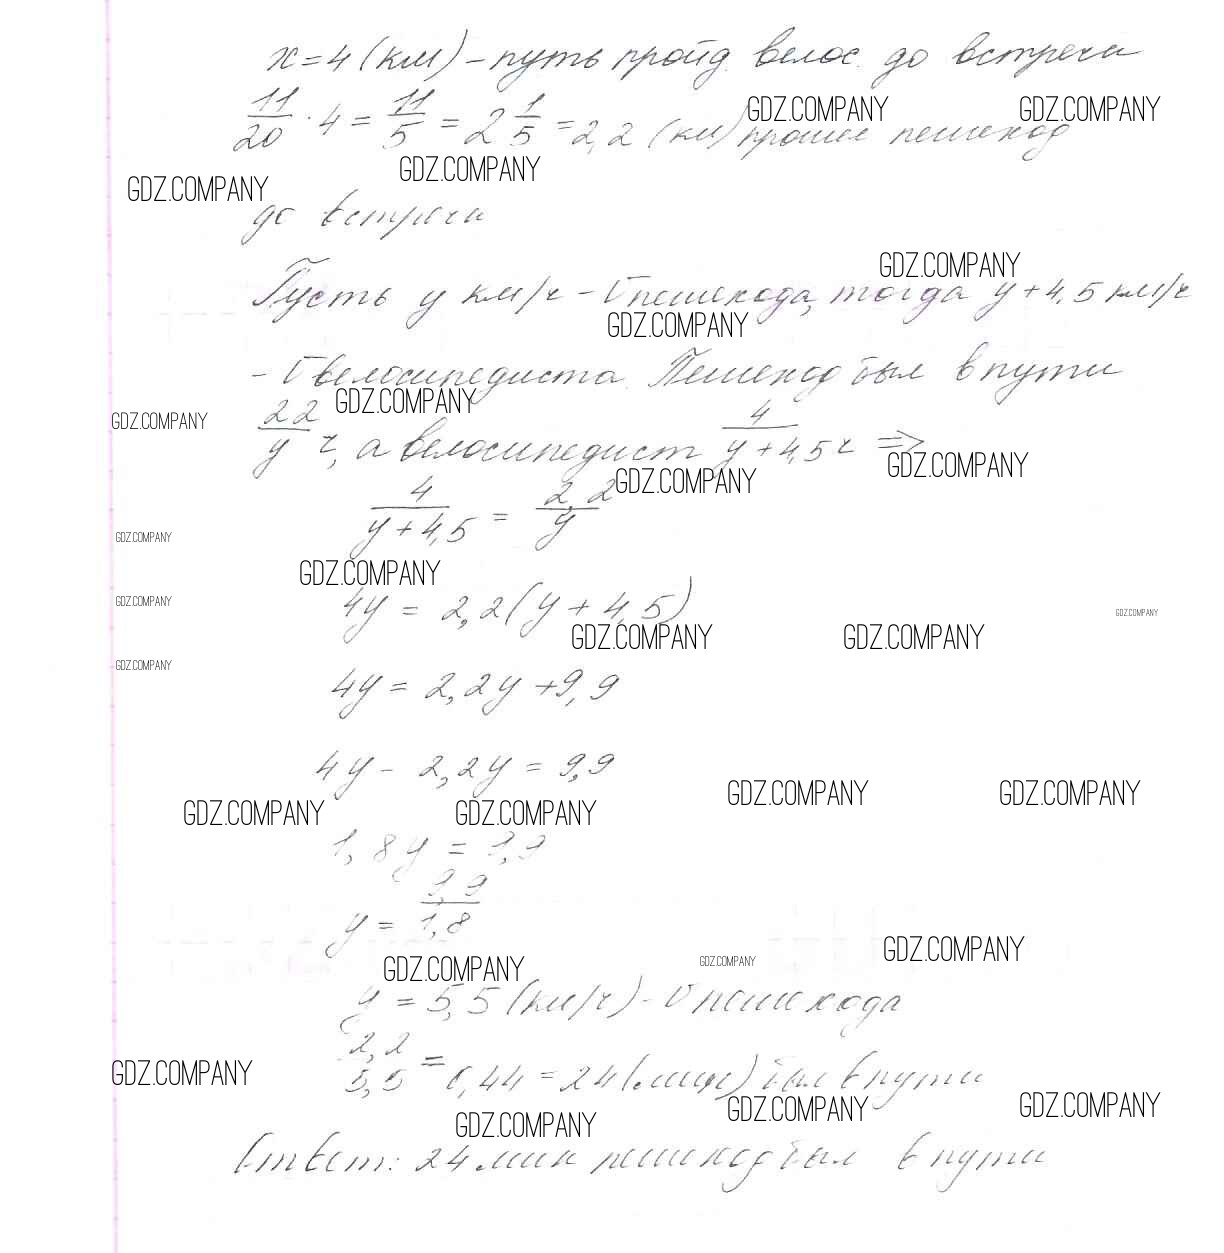 x = 4 (км) – путь пройд. велос. до встречи
11/20 · 4 = 11/5 = 2 1/5 = 2,2 (км) прошел пешеход
GDZ.COMPANY GDZ.COMPANY
GDZ.COMPANY GDZ.COMPANY
до встречи
GDZ.COMPANY
Пусть y км/ч – V пешехода, тогда y + 4,5 км/ч
GDZ.COMPANY
– V велосипедиста. Пешеход был в пути
GDZ.COMPANY GDZ.COMPANY
22/y ч, а велосипедист 4/(y + 4,5) ч =>
GDZ.COMPANY GDZ.COMPANY
4/(y + 4,5) = 2,2/y
GDZ.COMPANY
GDZ.COMPANY
4y = 2,2(y + 4,5)
GDZ.COMPANY GDZ.COMPANY
GDZ.COMPANY GDZ.COMPANY
GDZ.COMPANY
4y = 2,2y + 9,9
4y – 2,2y = 9,9
GDZ.COMPANY GDZ.COMPANY GDZ.COMPANY GDZ.COMPANY
1,8y = 9,9
y = 9,9/1,8
GDZ.COMPANY GDZ.COMPANY GDZ.COMPANY
y = 5,5 (км/ч) – V пешехода
2,2/5,5 = 0,44 = 24 (мин) был в пути
GDZ.COMPANY
GDZ.COMPANY GDZ.COMPANY GDZ.COMPANY
Ответ: 24 мин пешеход был в пути